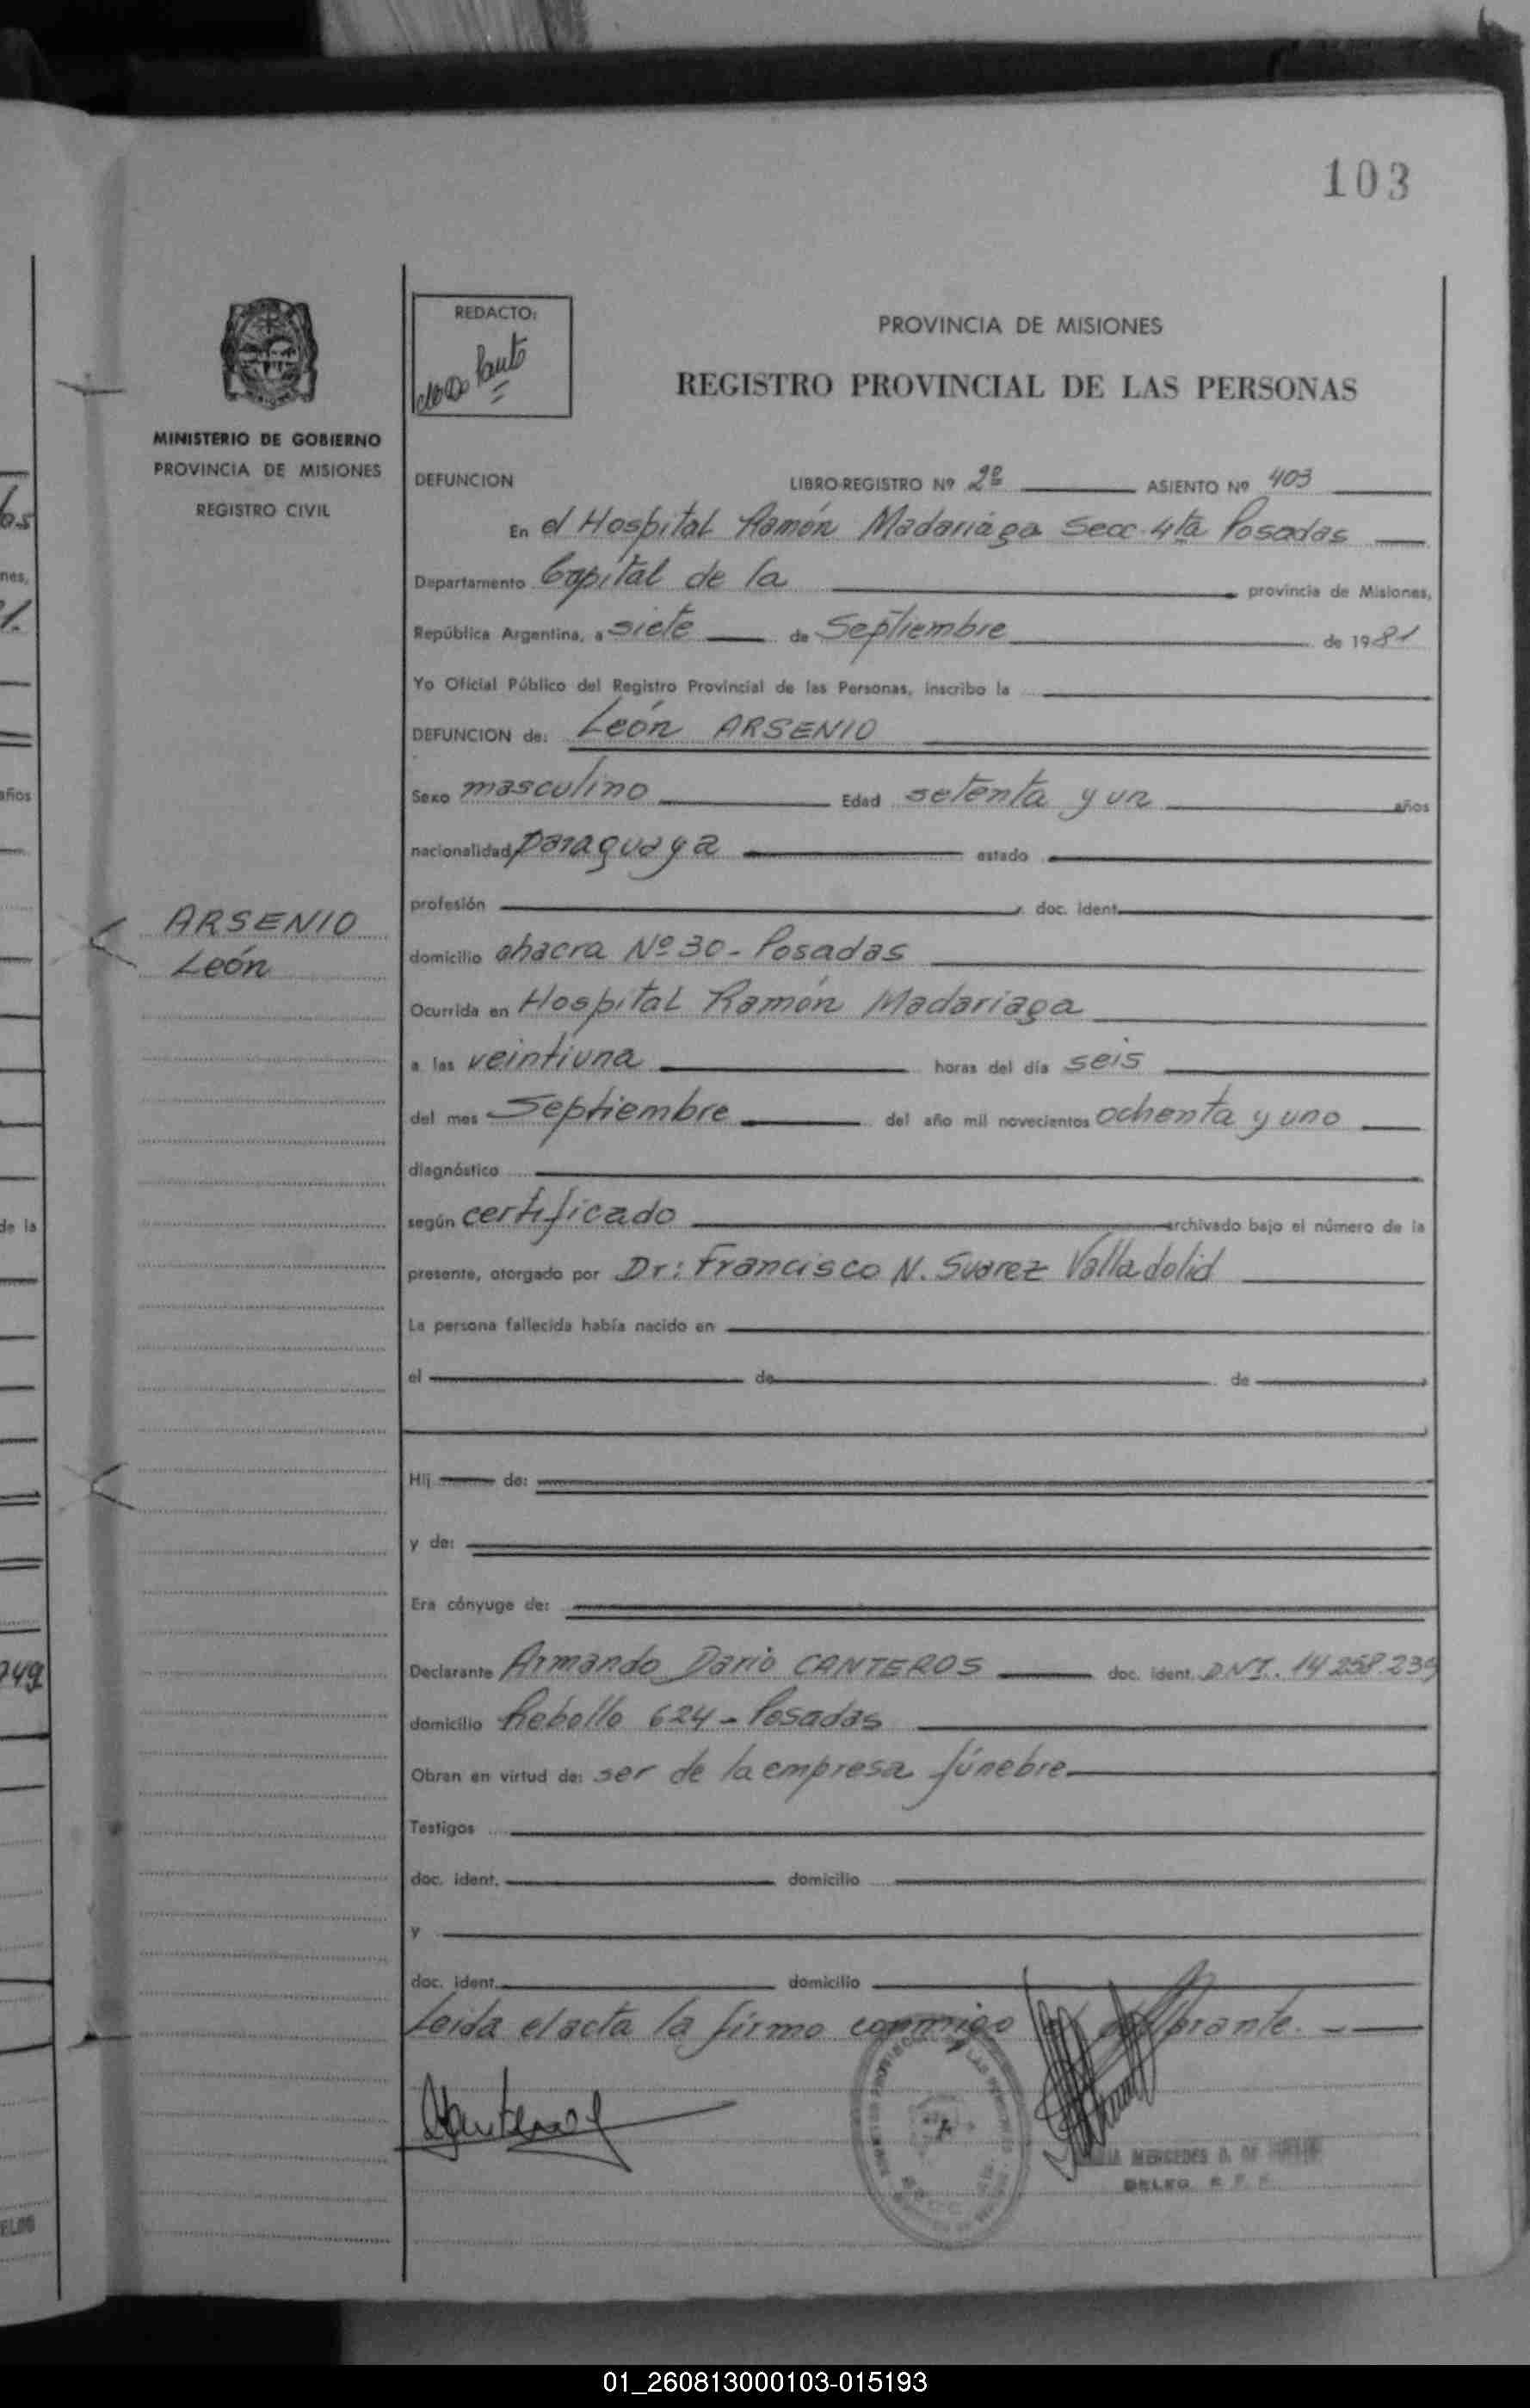 103
REDACTO:
PROVINCIA DE MISIONES
REGISTRO PROVINCIAL DE LAS PERSONAS
MINISTERIO DE GOBIERNO
PROVINCIA DE MISIONES
REGISTRO CIVIL
DEFUNCION LIBRO-REGISTRO Nº 2º ASIENTO Nº 403
En el Hospital Ramón Madariaga Secc. 4ta Posadas
Departamento Capital de la provincia de Misiones,
República Argentina, a siete de Septiembre de 1981
Yo Oficial Público del Registro Provincial de las Personas, inscribo la
DEFUNCION de: León ARSENIO
Sexo masculino Edad setenta y un años
nacionalidad paraguaya estado
profesión doc. ident.
ARSENIO
León
domicilio chacra Nº 30 - Posadas
Ocurrida en Hospital Ramón Madariaga
a las veintiuna horas del día seis
del mes Septiembre del año mil novecientos ochenta y uno
diagnóstico
según certificado archivado bajo el número de la
presente, otorgado por Dr: Francisco N. Suarez Valladolid
La persona fallecida había nacido en
el de de
Hij de:
y de:
Era cónyuge de:
Declarante Armando Dario CANTEROS doc. ident. D.N.I. 14 258.239
domicilio Rebollo 624 - Posadas
Obran en virtud de: ser de la empresa fúnebre
Testigos
doc. ident. domicilio
y
doc. ident. domicilio
Leida el acta la firma conmigo
MERCEDES
DELEG.
años
de la
01_260813000103-015193